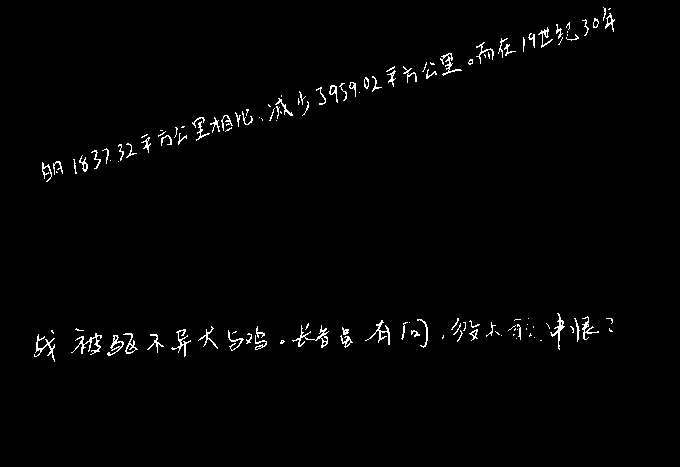 的1837.32平方公里相比、减少了959.02平方公里。而在19世纪30年
战被驱不异犬与鸡。长者虽有问,役夫敢申恨?